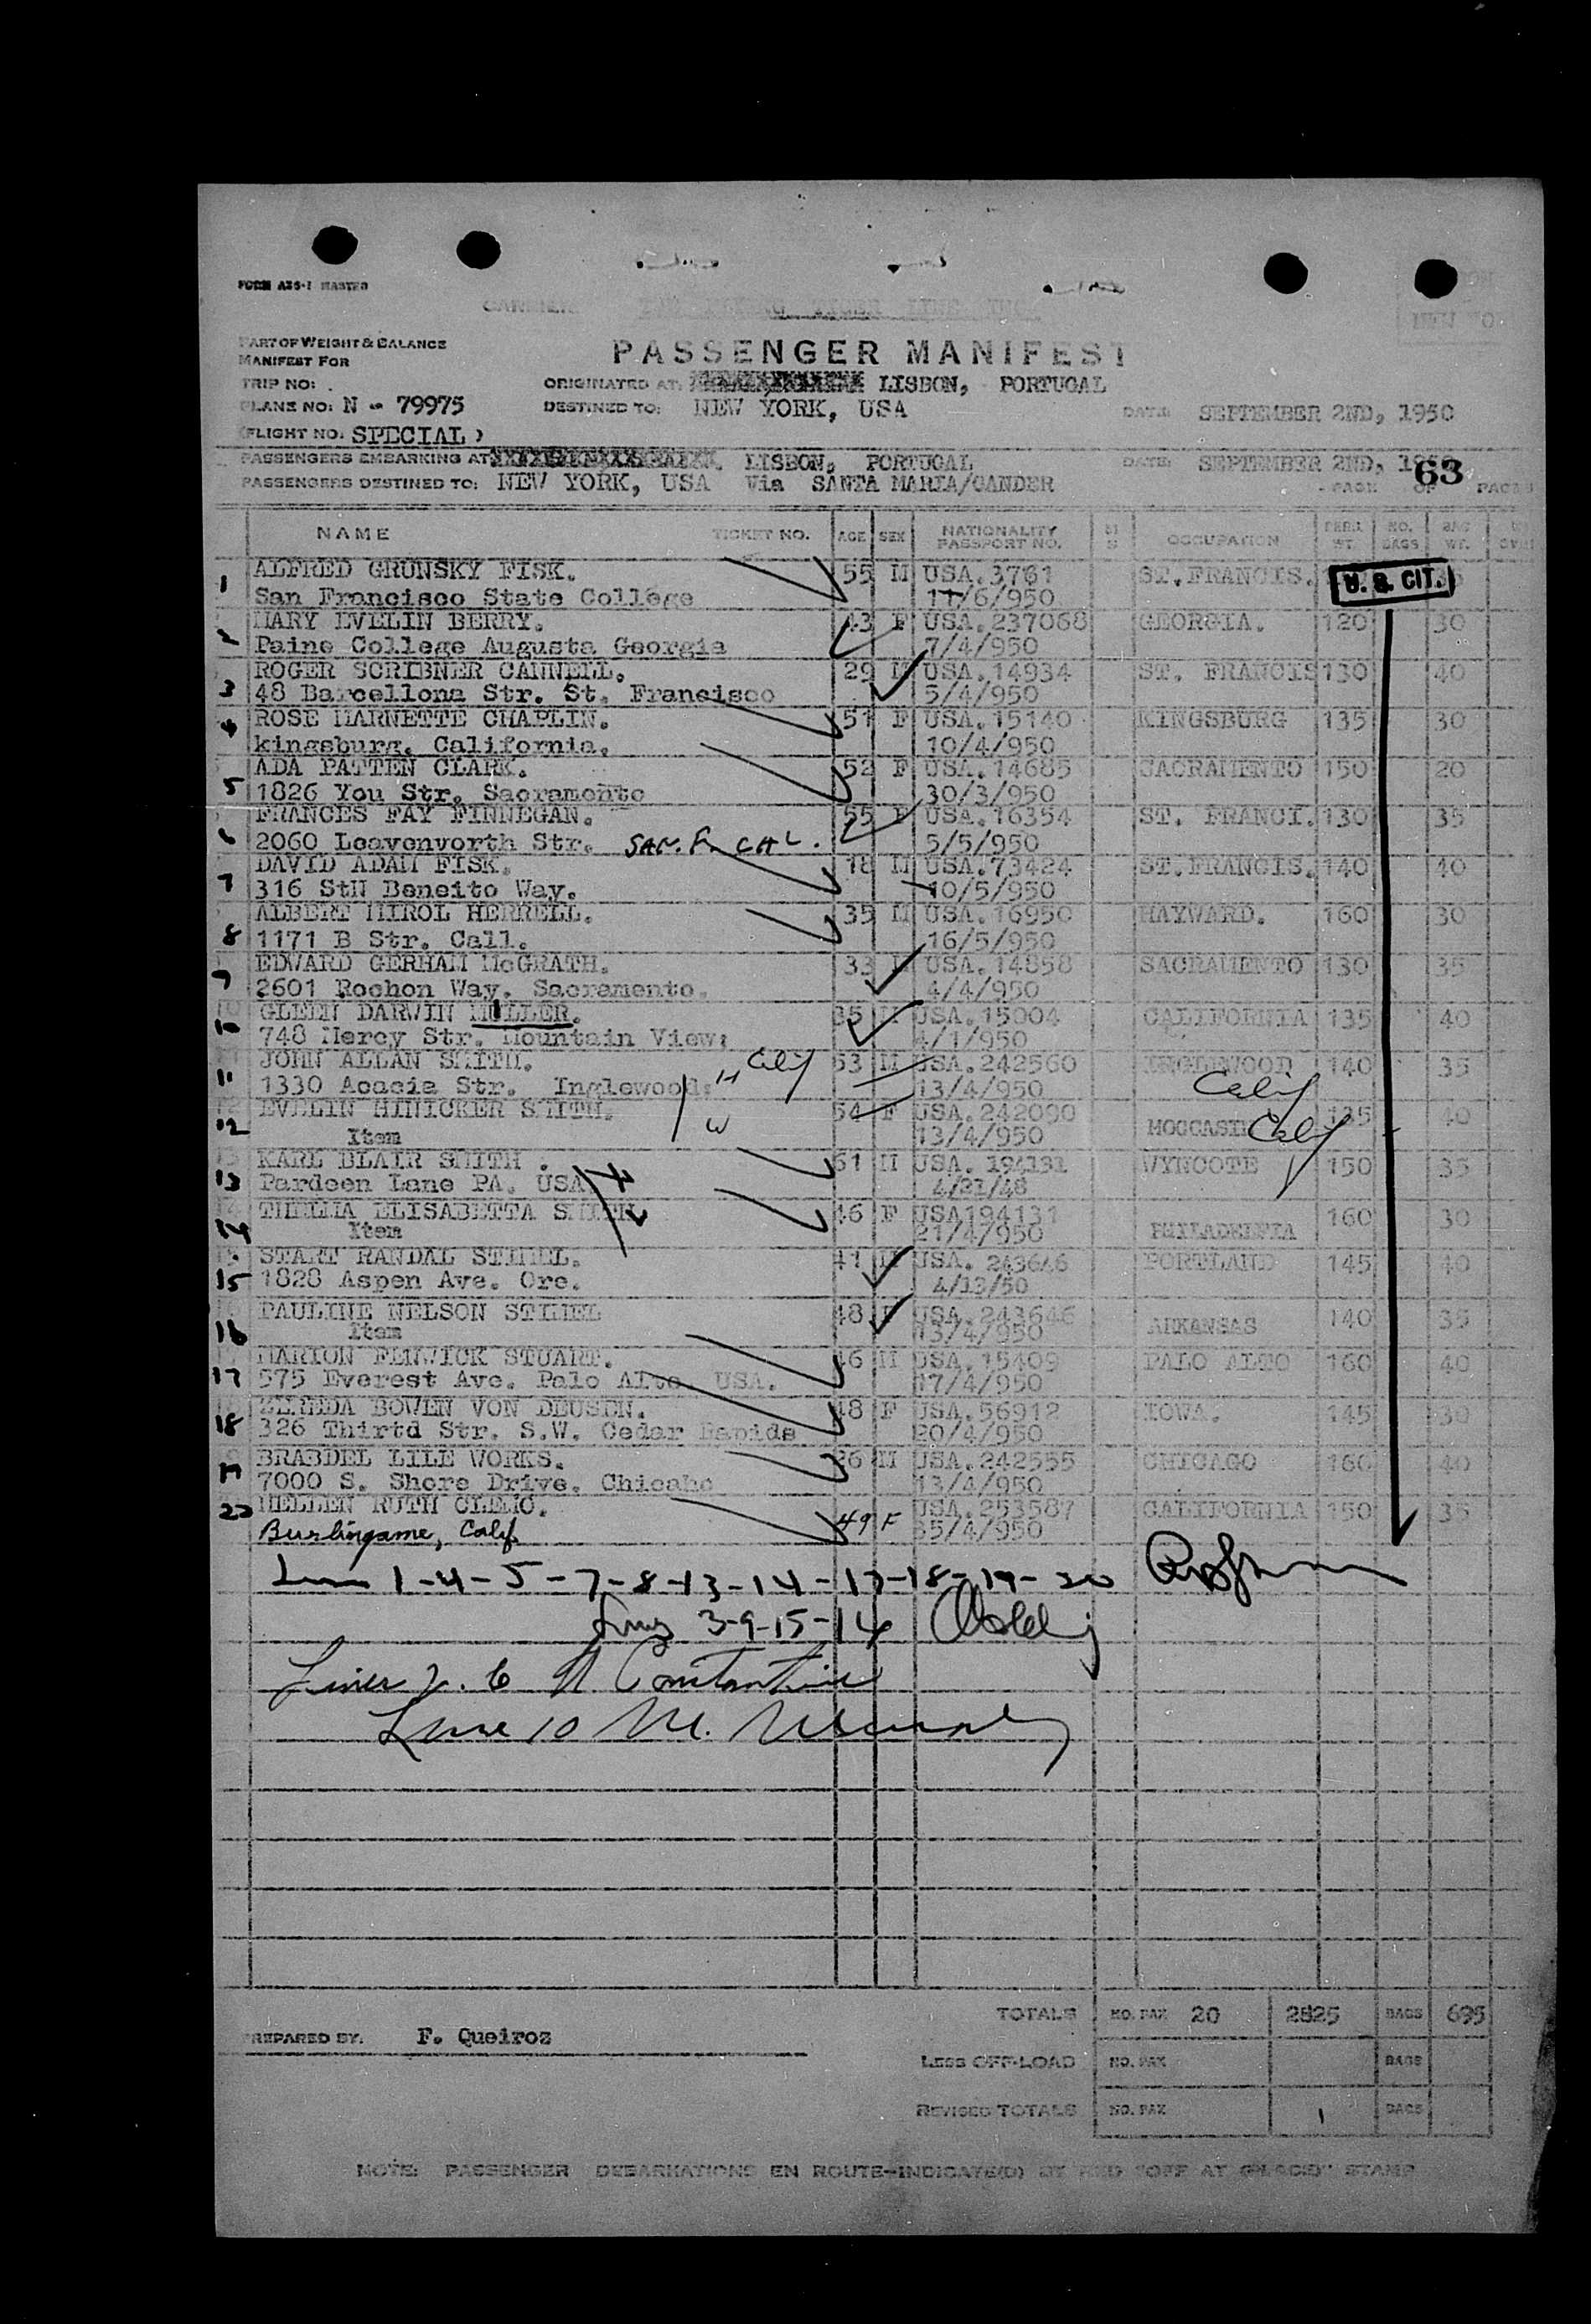 FORM A35-1 MASTER
CARRIER: THE FLYING TIGER LINE INC.
NEW YO
PART OF WEIGHT & BALANCE
MANIFEST FOR
PASSENGER MANIFEST
TRIP NO:
ORIGINATED AT: LISBON, PORTUGAL
PLANE NO: N - 79975
DESTINED TO: NEW YORK, USA
DATE: SEPTEMBER 2ND, 1950
(FLIGHT NO. SPECIAL)
PASSENGERS EMBARKING AT: LISBON, PORTUGAL
DATE: SEPTEMBER 2ND, 1950
63
PASSENGERS DESTINED TO: NEW YORK, USA Via SANTA MARIA/GANDER
PAGE OF PAGES
NAME TICKET NO. AGE SEX NATIONALITY PASSPORT NO. OCCUPATION PERS. WT. NO. BAGS BAG WT.
1 ALFRED GRUNSKY FISK. 55 M USA.3761 ST.FRANCIS. U. S. CIT.
San Francisco State College 11/6/950
2 MARY EVELIN BERRY. 43 F USA.237068 GEORGIA. 120 30
Paine College Augusta Georgia 7/4/950
3 ROGER SCRIBNER CANNELL. 29 M USA.14934 ST. FRANCIS 130 40
48 Barcellona Str. St. Francisco 5/4/950
4 ROSE MARNETTE CHAPLIN. 51 F USA.15140 KINGSBURG 135 30
kingsburg. California. 10/4/950
5 ADA PATTEN CLARK. 52 F USA.14685 SACRAMENTO 150 20
1826 You Str. Sacramento 30/3/950
6 FRANCES FAY FINNEGAN. 55 F USA.16354 ST. FRANCI. 130 35
2060 Leavenvorth Str. SAN. F. CAL. 5/5/950
7 DAVID ADAM FISK. 18 M USA.73424 ST.FRANCIS. 140 40
316 StN Beneito Way. 10/5/950
8 ALBERT MIROL HERRELL. 35 M USA.16950 HAYWARD. 160 30
1171 B Str. Call. 16/5/950
9 EDWARD GERHAM McGRATH. 33 M USA.14858 SACRAMENTO 130 35
2601 Rochon Way. Sacramento. 4/4/950
10 GLENN DARWIN MULLER. 35 M USA.15004 CALIFORNIA 135 40
748 Mercy Str. Mountain View; 4/1/950
11 JOHN ALLAN SMITH. H Calif 53 M USA.242560 INGLEWOOD 140 35
1330 Acacia Str. Inglewood. 13/4/950 Calif
12 EVELIN HINICKER SMITH. W 54 F USA.242090 MOCCASIN Calif 135 40
Item 13/4/950
13 KARL BLAIR SMITH. H 51 M USA. 194131 WYNCOTE 150 35
Pardeen Lane PA. USA 4/21/48
14 THELMA ELISABETTA SMITH W 46 F USA194131 PHILADELFIA 160 30
Item 21/4/950
15 START RANDAL STIMEL. 41 M USA. 243646 PORTLAND 145 40
1828 Aspen Ave. Ore. 4/13/50
16 PAULINE NELSON STIMEL 48 F USA.243646 ARKANSAS 140 35
Item 13/4/950
17 MARION FENWICK STUART. 46 M USA.15409 PALO ALTO 160 40
575 Everest Ave. Palo Alto. USA. 17/4/950
18 BOWEN VON DEUSEN. 48 F USA.56912 IOWA. 145 30
326 Thirtd Str. S.W. Cedar Rapids 20/4/950
19 BRABDEL LILE WORKS. 26 M USA.242555 CHICAGO 160 40
7000 S. Shore Drive. Chicaho 13/4/950
20 HELLEN RUTH CLEMO. 49 F USA.253587 CALIFORNIA 150 35
Burlingame, Calif. 5/4/950
Lines 1-4-5-7-8-13-14-17-18-19-20
Lines 3-9-15-16
Lines 2. 6 N Constantine
Line 10 M.
TOTALS NO. PAX 20 2825 BAGS 695
PREPARED BY. F. Queiroz
LESS OFF-LOAD NO. PAX BAGS
REVISED TOTALS NO. PAX BAGS
NOTE: PASSENGER DEBARKATIONS EN ROUTE-INDICATE(D) BY RED "OFF AT (PLACE)" STAMP